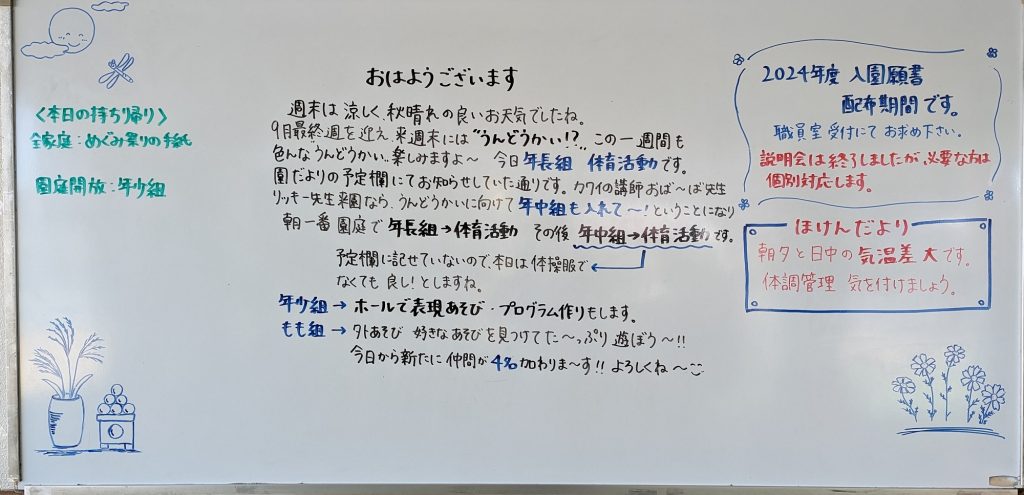 〈本日の持ち帰り〉
全家庭：めぐみ祭りの手紙
園庭開放：年少組
おはようございます
週末は涼しく、秋晴れの良いお天気でしたね。
9月最終週を迎え、来週末には"うんどうかい!?" この一週間も
色んなうんどうかい…楽しみますよ～ 今日年長組 体育活動です。
園だよりの予定欄にてお知らせしていた通りです。カワイの講師おば～ば先生
リッキー先生来園なら、うんどうかいに向けて年中組も入れて～!ということになり
朝一番 園庭で年長組→体育活動 その後 年中組→体育活動です。
予定欄に記せていないので、本日は体操服で
なくても良し!としますね。
年少組→ホールで表現あそび・プログラム作りもします。
もも組→外あそび 好きなあそびを見つけてた～っぷり遊ぼう～!!
今日から新たに仲間が4名加わりま～す!! よろしくね～
2024年度 入園願書
配布期間です。
職員室受付にてお求め下さい。
説明会は終了しましたが、必要な方は
個別対応します。
ほけんだより
朝夕と日中の気温差大です。
体調管理 気を付けましょう。